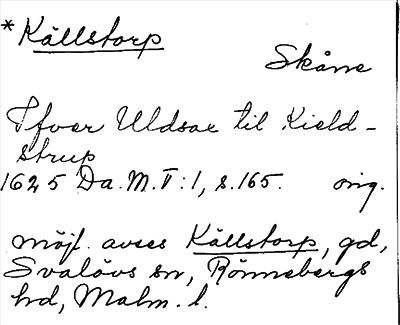 *Källstorp
Skåne
Ifver Uldsax til Kield-
strup
1625 Da.M.V:1, s.165. orig.
möjl. avses Källstorp, gd,
Svalövs sn, Rönnebergs
hd, Malm. l.